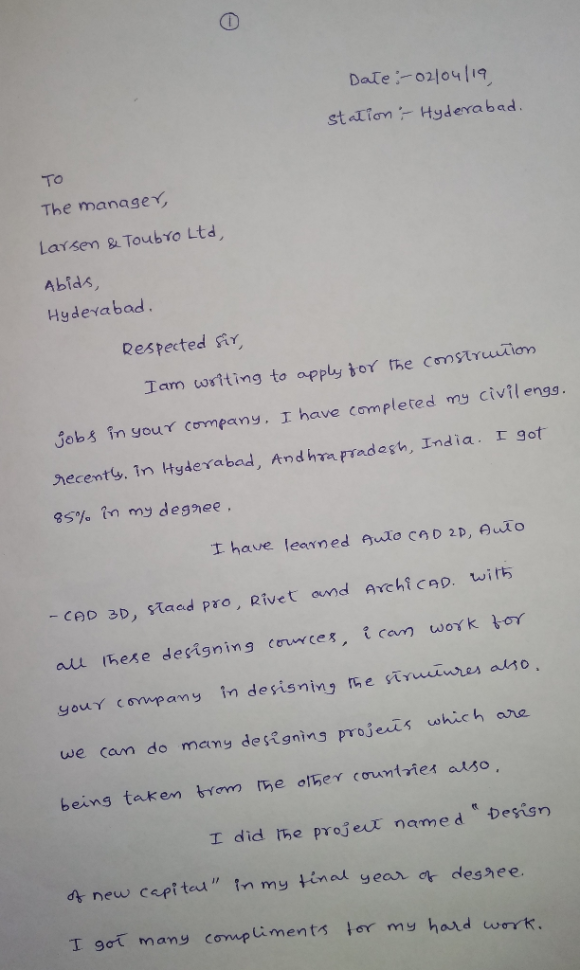 1
Date :- 02/04/19,
Station :- Hyderabad.
To
The manager,
Larsen & Toubro Ltd,
Abids,
Hyderabad.
Respected Sir,
I am writing to apply for the construction
jobs in your company. I have completed my civil engg.
recently. in Hyderabad, Andhrapradesh, India. I got
85% in my degree.
I have learned Auto CAD 2D, Auto
- CAD 3D, staad pro, Rivet and Archi CAD. with
all these designing cources, i can work for
your company in designing the structures also.
we can do many designing projects which are
being taken from the other countries also.
I did the project named "Design
of new capital" in my final year of degree.
I got many compliments for my hard work.